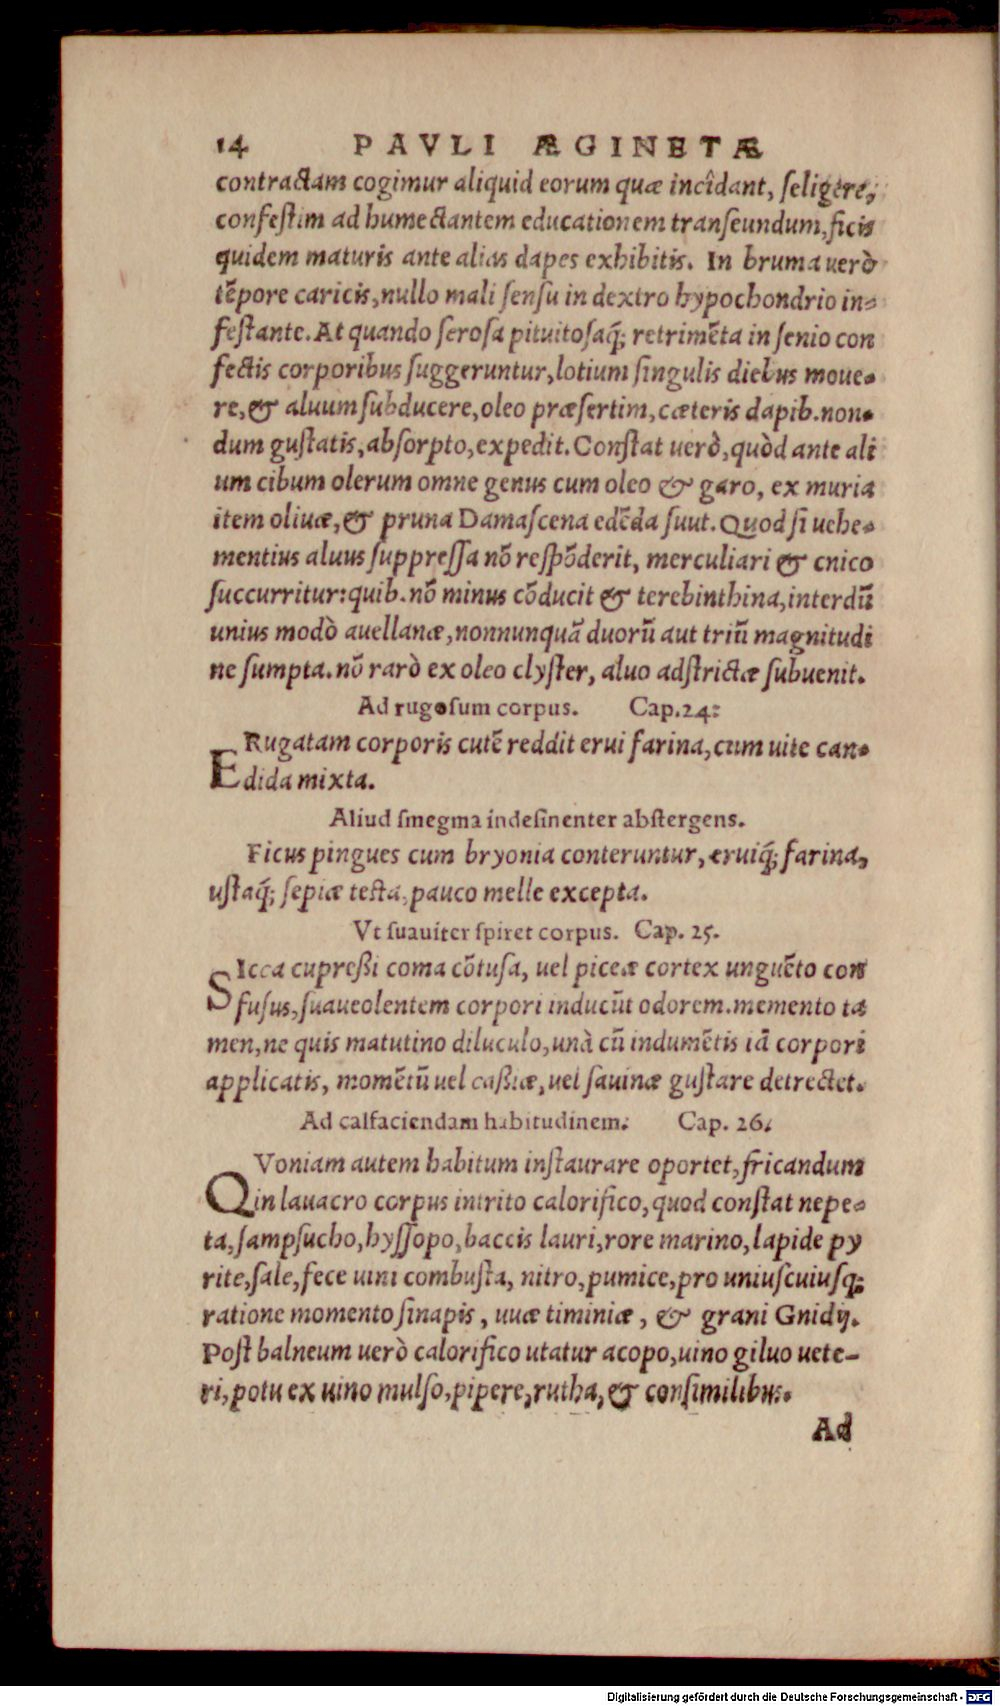 14 PAVLI ÆGINETÆ
contractam cogimur aliquid eorum quæ incîdant, ſeligere,
confeſtim ad humectantem educationem tranſeundum, ficis
quidem maturis ante alias dapes exhibitis. In bruma uerò
tẽpore caricis, nullo mali ſenſu in dextro hypochondrio in-
feſtante. At quando ſeroſa pituitoſaq; retrimẽta in ſenio con
fectis corporibus ſuggeruntur, lotium ſingulis diebus moue-
re, & aluum ſubducere, oleo præſertim, cæteris dapib. non-
dum guſtatis, abſorpto, expedit. Conſtat uerò, quòd ante ali
um cibum olerum omne genus cum oleo & garo, ex muria
item oliuæ, & pruna Damaſcena edẽda ſuut. Quod ſi uehe-
mentius aluus ſuppreſſa nõ reſpõderit, merculiari & cnico
ſuccurritur: quib. nõ minus cõducit & terebinthina, interdũ
unius modò auellanæ, nonnunquã duorũ aut triũ magnitudi
ne ſumpta. nõ rarò ex oleo clyſter, aluo adſtrictæ ſubuenit.
Ad rugoſum corpus. Cap. 24.
ERugatam corporis cutẽ reddit erui farina, cum uite can-
dida mixta.
Aliud ſmegma indeſinenter abſtergens.
Ficus pingues cum bryonia conteruntur, eruiq; farina,
uſtaq; ſepiæ teſta, pauco melle excepta.
Vt ſuauiter ſpiret corpus. Cap. 25.
SIcca cupreßi coma cõtuſa, uel piceæ cortex unguẽto con
fuſus, ſuaueolentem corpori inducũt odorem. memento ta
men, ne quis matutino diluculo, unà cũ indumẽtis iã corpori
applicatis, momẽtũ uel caßiæ, uel ſauinæ guſtare detrectet.
Ad calfaciendam habitudinem. Cap. 26.
QVoniam autem habitum inſtaurare oportet, fricandum
in lauacro corpus intrito calorifico, quod conſtat nepe-
ta, ſampſucho, hyſſopo, baccis lauri, rore marino, lapide py
rite, ſale, fece uini combuſta, nitro, pumice, pro uniuſcuiuſq;
ratione momento ſinapis, uuæ timiniæ, & grani Gnidij.
Poſt balneum uerò calorifico utatur acopo, uino giluo uete-
ri, potu ex uino mulſo, pipere, rutha, & conſimilibus.
Ad
Digitalisierung gefördert durch die Deutsche Forschungsgemeinschaft - DFG